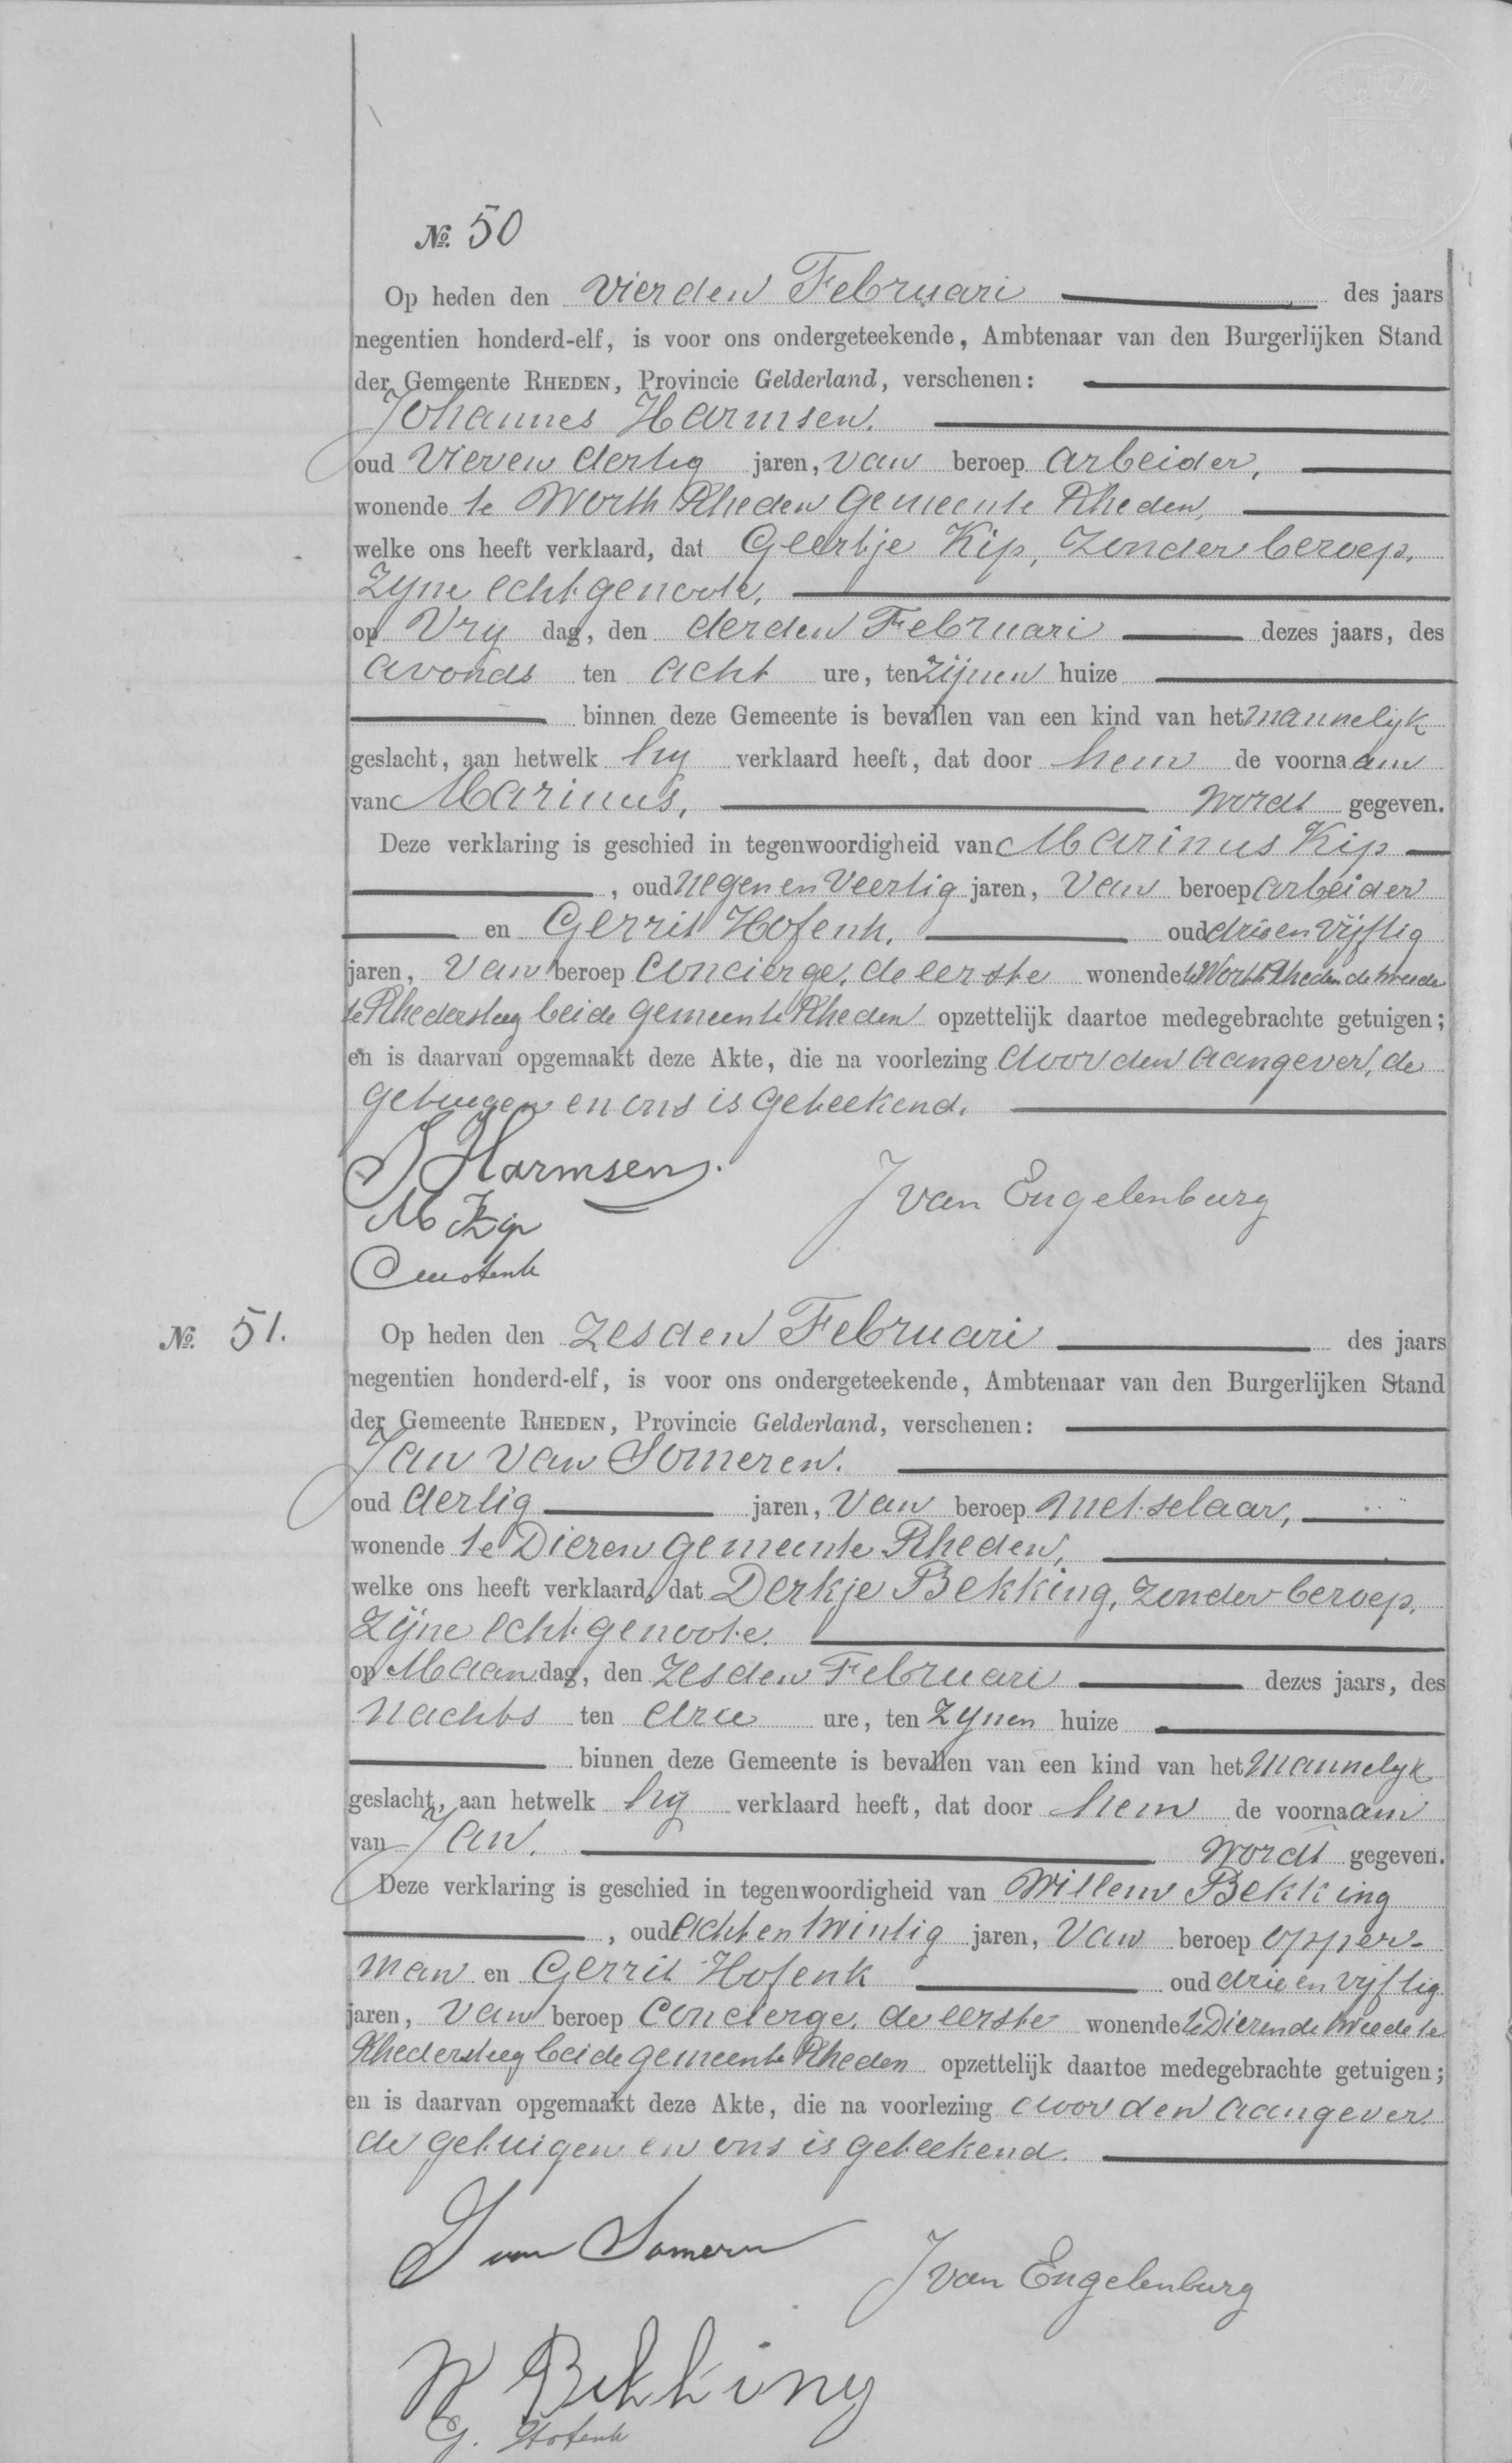 №. 50
Op heden den vierden Februari des jaars
negentien honderd-elf, is voor ons ondergeteekende, Ambtenaar van den Burgerlijken Stand
der Gemeente RHEDEN, Provincie Gelderland, verschenen:
Johannes Harmsen.
oud vierendertig jaren, van beroep arbeider,
wonende te Worth Rheden gemeente Rheden,
welke ons heeft verklaard, dat Geertje Kip, zonder beroep,
zyne echtgenoote,
op Vry dag, den derden Februari dezes jaars, des
avonds ten acht ure, ten zijnen huize
binnen deze Gemeente is bevallen van een kind van het mannelijk
geslacht, aan hetwelk hy verklaard heeft, dat door hem de voornaam
van Marinus, wordt gegeven.
Deze verklaring is geschied in tegenwoordigheid van Marinus Kip
, oud negenenveertig jaren, van beroep arbeider
en Gerrit Hofenk, oud drieenvijftig
jaren, van beroep concierge, de eerste wonende te Worth Rheden de tweede
te Rhedersteeg beide gemeente Rheden opzettelijk daartoe medegebrachte getuigen;
en is daarvan opgemaakt deze Akte, die na voorlezing door den aangever, de
getuigen en ons is geteekend.
J Harmsen.
J van Engelenburg
M Kip
№. 51.
Op heden den zesden Februari des jaars
negentien honderd-elf, is voor ons ondergeteekende, Ambtenaar van den Burgerlijken Stand
der Gemeente RHEDEN, Provincie Gelderland, verschenen:
Jan van Someren.
oud dertig jaren, van beroep metselaar,
wonende te Dieren gemeente Rheden,
welke ons heeft verklaard, dat Derkje Bekking, zonder beroep,
zijne echtgenoote.
op Maandag, den zesden Februari dezes jaars, des
nachts ten drie ure, ten zynen huize
binnen deze Gemeente is bevallen van een kind van het mannelyk
geslacht, aan hetwelk hy verklaard heeft, dat door hem de voornaam
van Jan. wordt gegeven.
Deze verklaring is geschied in tegenwoordigheid van Willem Bekking
, oud achtentwintig jaren, van beroep opper-
man en Gerrit Hofenk oud drieenvyftig
jaren, van beroep concierge, de eerste wonende te Dieren de tweede te
Rhedersteeg beide gemeente Rheden opzettelijk daartoe medegebrachte getuigen;
en is daarvan opgemaakt deze Akte, die na voorlezing door den aangever
de getuigen en ons is geteekend.
J van Someren
J van Engelenburg
W Bekking
G. Hofenk